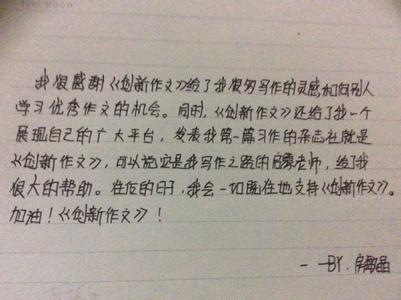 我很感谢《创新作文》给了我很多写作的灵感和向别人
学习优秀作文的机会。同时，《创新作文》还给了我一个
展现自己的广大平台，发表我第一篇习作的杂志社就是
《创新作文》，可以说它是我写作之路的启蒙老师，给了我
很大的帮助。在后的日子，我会一如既往地支持《创新作文》。
加油！《创新作文》！
——BY.